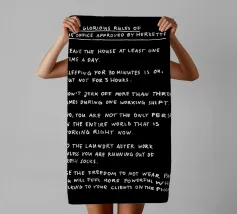 GLORIOUS RULES OF
OFFICE APPROVED BY HORSETTE
THE HOUSE AT LEAST ONE
A DAY.
FOR 30 MINUTES IS OK,
NOT FOR 3 HOURS.
JERK OFF MORE THAN THREE
DURING ONE WORKING SHIFT.
YOU ARE NOT THE ONLY PERSON
THE ENTIRE WORLD THAT IS
WORKING RIGHT NOW.
THE LAUNDRY AFTER WORK
YOU ARE RUNNING OUT OF
SOCKS.
THE FREEDOM TO NOT WEAR
WILL FEEL MORE POWERFUL
TO YOUR CLIENTS ON THE